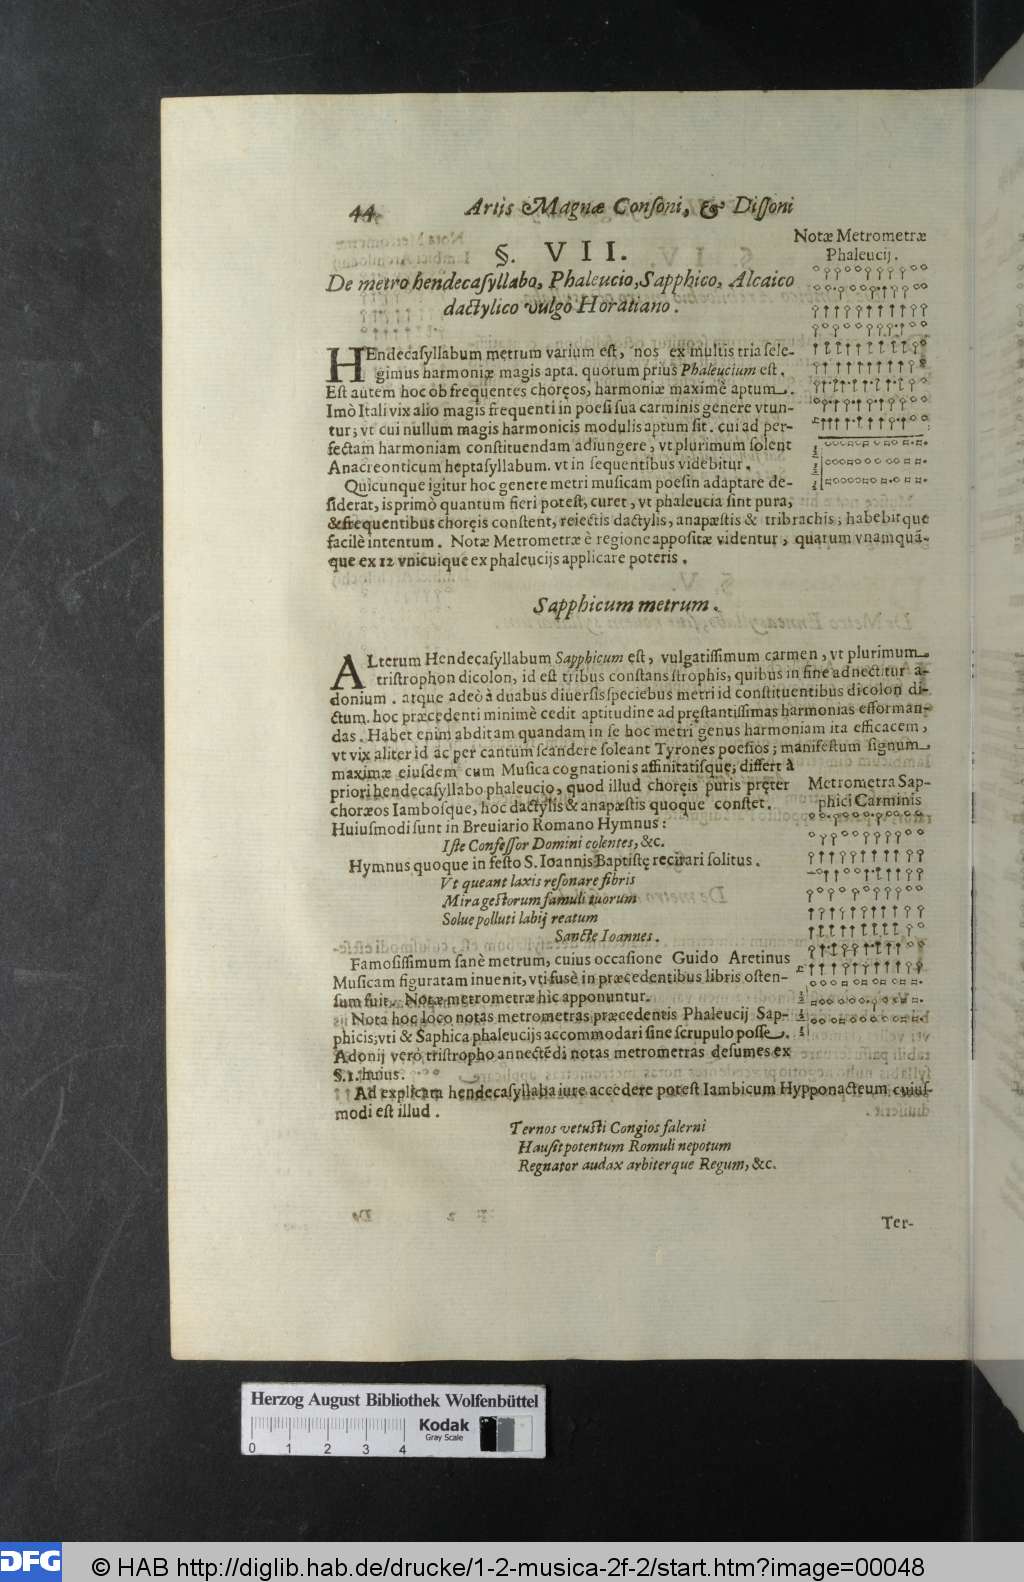 44 Artis Magnæ Consoni, & Dissoni
§. VII.
De metro hendecasyllabo, Phaleucio, Sapphico, Alcaico
dactylico vulgò Horatiano.
Notæ Metrometræ
Phaleucij.
HEndecasyllabum metrum varium est, nos ex multis tria sele-
gimus harmoniæ magis apta. quorum prius Phaleucium est.
Est autem hoc ob frequentes choręos, harmoniæ maximè aptum.
Imò Itali vix alio magis frequenti in poesi sua carminis genere vtun-
tur; vt cui nullum magis harmonicis modulis aptum sit. cui ad per-
fectam harmoniam constituendam adiungere, vt plurimum solent
Anacreonticum heptasyllabum. vt in sequentibus videbitur.
Quicunque igitur hoc genere metri musicam poesin adaptare de-
siderat, is primò quantum fieri potest, curet, vt phaleucia sint pura,
& frequentibus choręis constent, reiectis dactylis, anapæstis & tribrachis; habebitque
facilè intentum. Notæ Metrometræ è regione appositæ videntur, quarum vnamquã-
que ex 12 vnicuique ex phaleucijs applicare poteris.
Sapphicum metrum.
ALterum Hendecasyllabum Sapphicum est, vulgatissimum carmen, vt plurimum
tristrophon dicolon, id est tribus constans strophis, quibus in fine adnectitur a-
donium. atque adeò à duabus diuersis speciebus metri id constituentibus dicolon di-
ctum. hoc præcedenti minimè cedit aptitudine ad pręstantissimas harmonias efforman-
das. Habet enim abditam quandam in se hoc metri genus harmoniam ita efficacem,
vt vix aliter id ac per cantum scandere soleant Tyrones poesios; manifestum signum
maximæ eiusdem cum Musica cognationis affinitatisque; differt à
priori hendecasyllabo phaleucio, quod illud choręis puris pręter
choræos Iambosque, hoc dactylis & anapæstis quoque constet.
Metrometra Sap-
phici Carminis
Huiusmodi sunt in Breuiario Romano Hymnus:
Iste Confessor Domini colentes, &c.
Hymnus quoque in festo S. Ioannis Baptistę recitari solitus.
Vt queant laxis resonare fibris
Mira gestorum famuli tuorum
Solue polluti labij reatum
Sancte Ioannes.
Famosissimum sanè metrum, cuius occasione Guido Aretinus
Musicam figuratam inuenit, vti fusè in præcedentibus libris osten-
sum fuit. Notæ metrometræ hìc apponuntur.
Nota hoc loco notas metrometras præcedentis Phaleucij Sap-
phicis; vti & Saphica phaleucijs accommodari sine scrupulo posse.
Adonij verò tristropho annectẽdi notas metrometras desumes ex
§. 1. huius.
Ad explicata hendecasyllaba iure accedere potest Iambicum Hypponacteum cuius-
modi est illud.
Ternos vetusti Congios falerni
Hausit potentum Romuli nepotum
Regnator audax arbiterque Regum, &c.
Ter-
Herzog August Bibliothek Wolfenbüttel
Kodak
Gray Scale
0 1 2 3 4
DFG © HAB http://diglib.hab.de/drucke/1-2-musica-2f-2/start.htm?image=00048